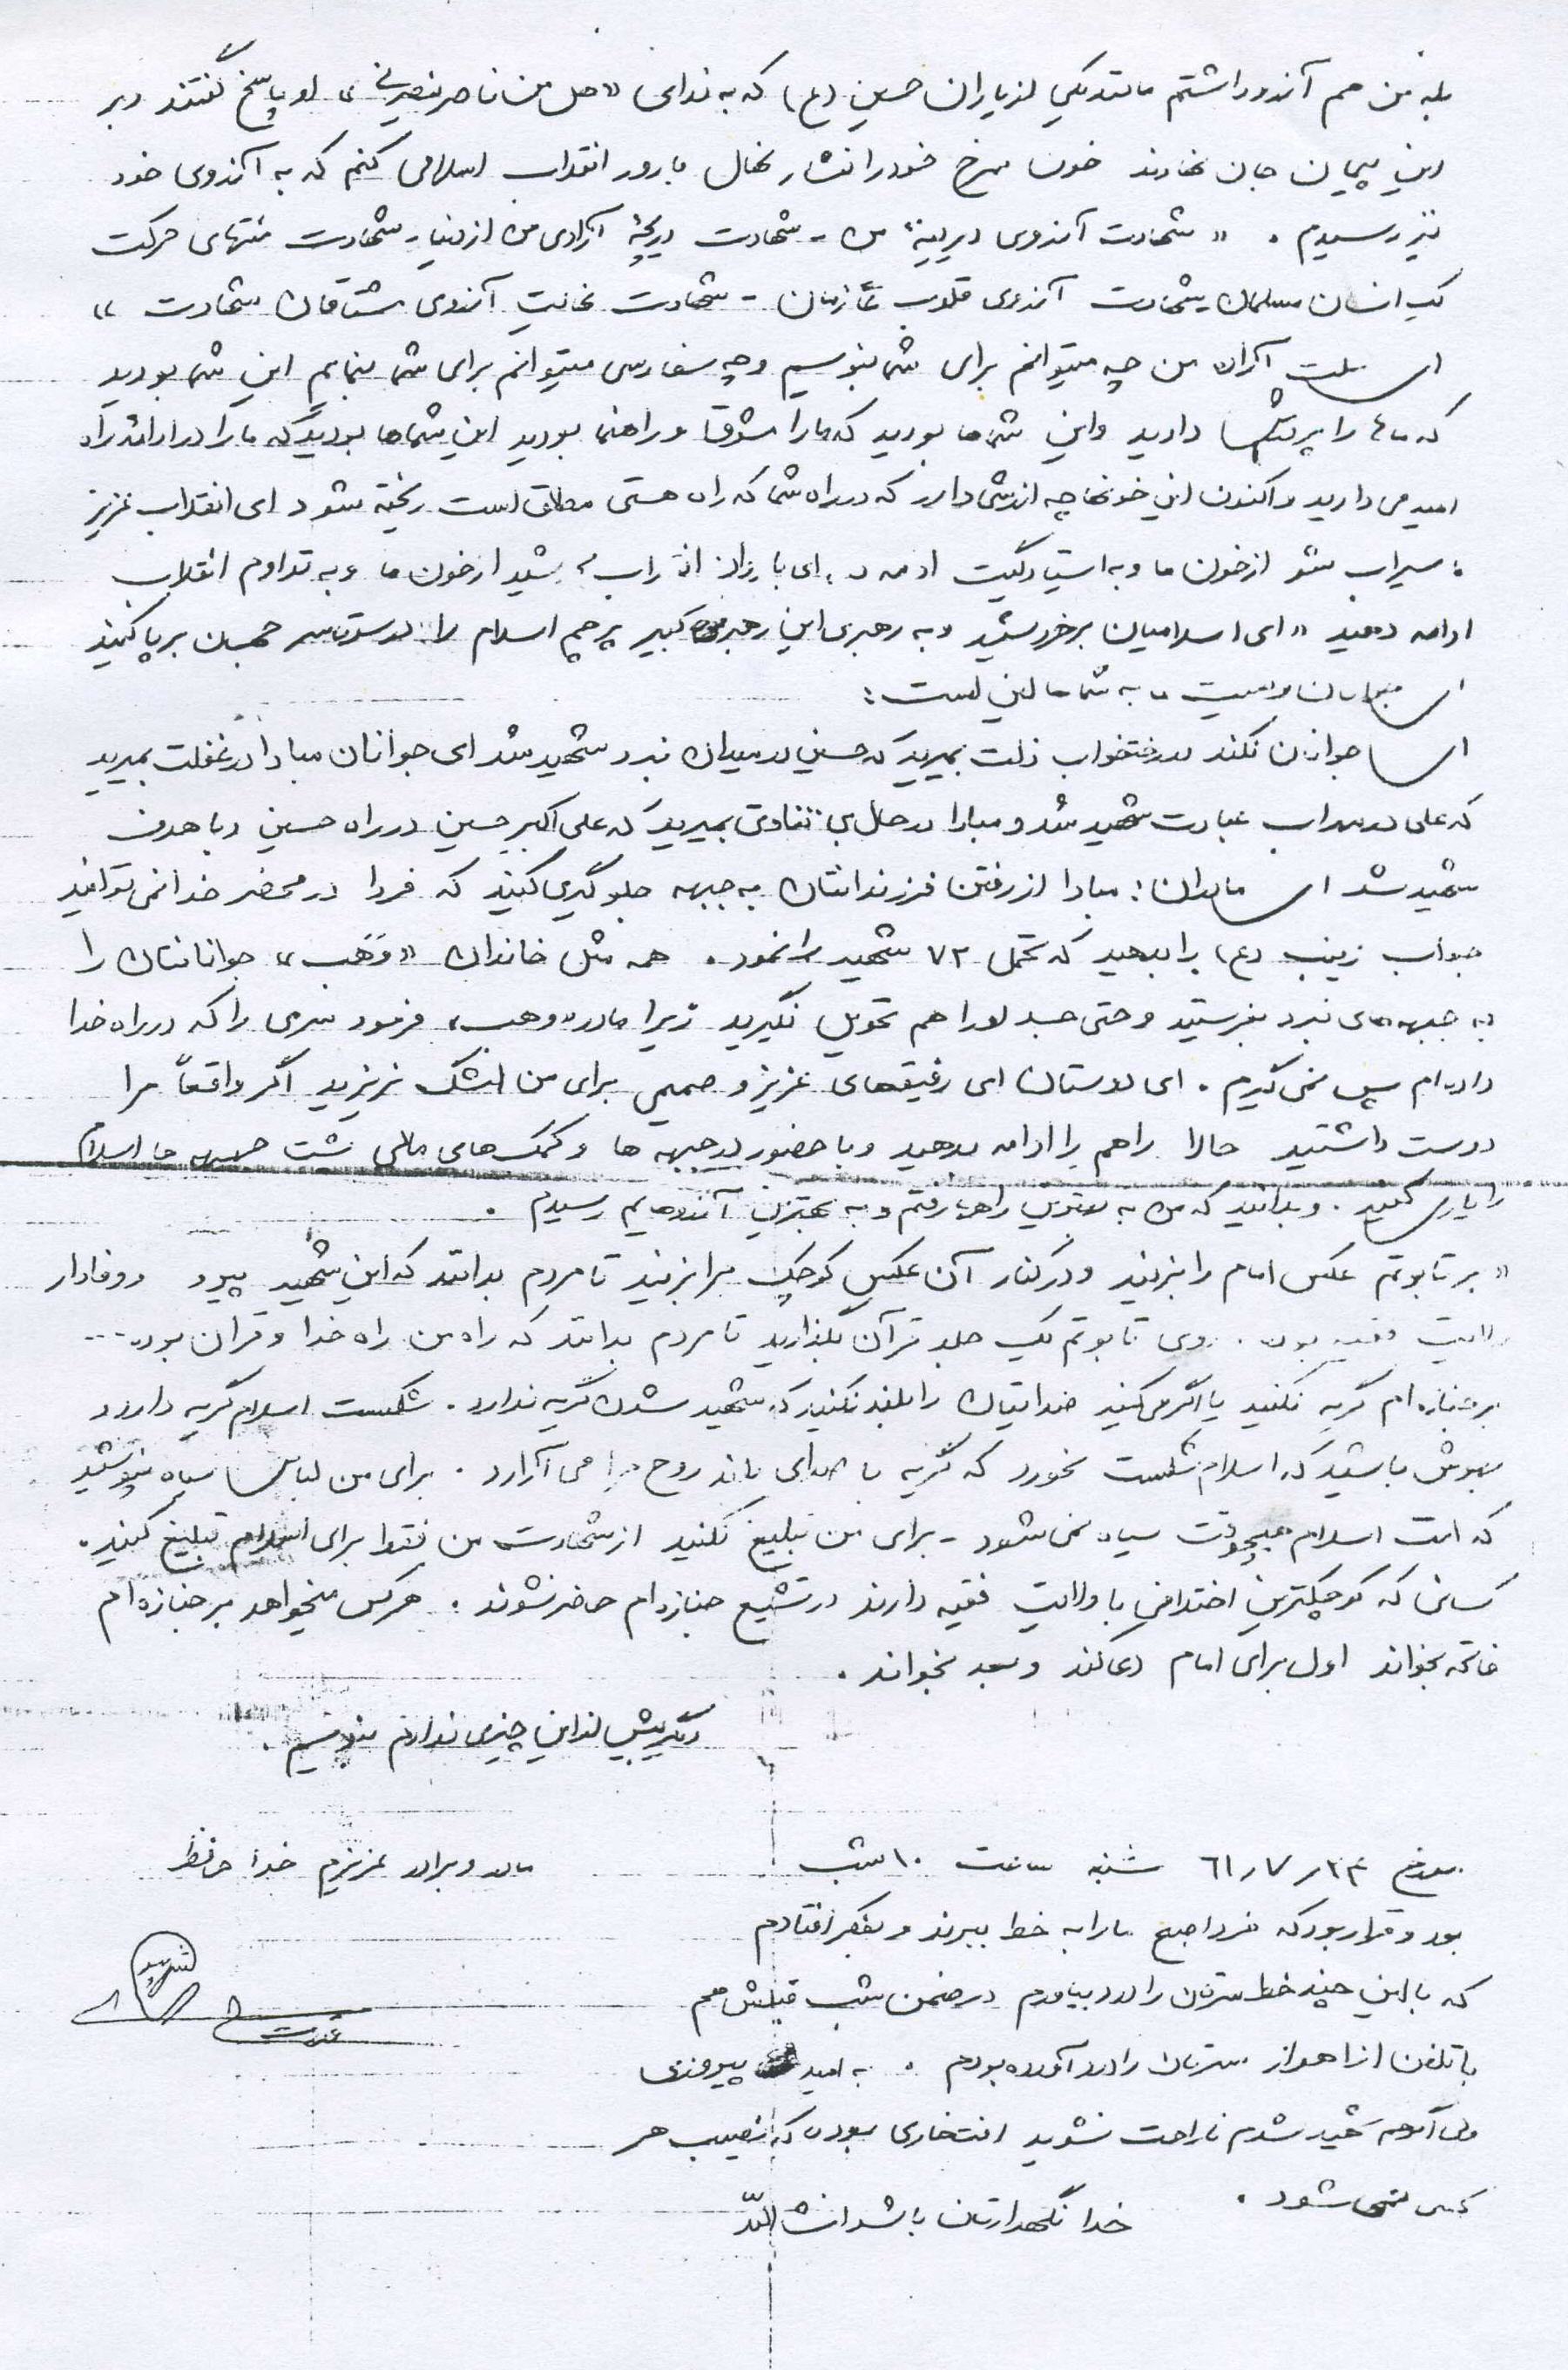 بله من هم آرزو داشتم مانند یکی از یاران حسین (ع) که به ندای «هل من ناصر ینصرنی» او پاسخ گفتند و بر
این پیمان جان نهادند خون سرخ خود را نثار نهال بارور انقلاب اسلامی کنم که به آرزوی خود
نیز رسیدم . «شهادت آرزوی دیرینهٔ من - شهادت دریچهٔ آزادی من از دنیا - شهادت منتهای حرکت
یک انسان مسلمان - شهادت آرزوی قلوب - شهادت غایت آرزوی مشتاقان شهادت»
ای ملت من چه میتوانم برای شما بنویسم و چه سفارسی میتوانم برای شما بنمایم این شما بودید
که ماها را پرتش دادید و این شماها بودید که ما را مشوق و راهنما بودید این شماها بودید که ما را در ادامه راه
امید می دادید و اکنون این خونها چه ارزشی دارد که در راه شما که راه هستی مطلق است ریخته شود ای انقلاب عزیز
: سیراب شو از خون ما و به استادگیت ادامه ده ای سیراب شید از خون ما و به تداوم انقلاب
ادامه دهید «ای اسلامیان برخروشید و به رهبری این رهبر کبیر پرچم اسلام را در سرتاسر جهان بر پا کنید
ای وصیت ما به شماها این است :
ای جوانان نکند در رختخواب ذلت بمیرید که حسین در میدان نبرد شهید شد ای جوانان مبادا در غفلت بمیرید
که علی در محراب عبادت شهید شد و مبادا در حال بی تفاوتی بمیرید که علی اکبر حسین در راه حسین و با هدف
شهید شد ای مادران : مبادا از رفتن فرزندانتان به جبهه جلوگیری کنید که فردا در محضر خدا نمی توانید
جواب زینب (ع) را بدهید که تحمل ۷۲ شهید را نمود . همه مثل خاندان «وَهَب» جوانانتان را
به جبهه های نبرد بفرستید و حتی جسد او را هم تحویل نگیرید زیرا مادر «وهب» فرمود سری را که در راه خدا
داده ام پس نمی گیرم . ای دوستان ای رفیقهای عزیز و صمیمی برای من اشک نریزید اگر واقعاً مرا
دوست داشتید حالا راهم را ادامه بدهید و با حضور در جبهه ها و کمک های مالی پشت جبهه ها اسلام
را یاری کنید . و بدانید که من به بهترین راهها رفتم و به بهترین آرزوهایم رسیدم .
« بر تابوتم عکس امام را بزنید و در کنار آن عکس کوچک مرا بزنید تا مردم بدانند که این شهید پیرو و وفادار
ولایت فقیه بود . روی تابوتم یک جلد قرآن بگذارید تا مردم بدانند که راه من راه خدا و قرآن بود....
بر جنازه ام گریه نکنید یا اگر می کنید صدایتان را بلند نکنید که شهید شدن گریه ندارد . شکست اسلام گریه دارد و
بهوش باشید که اسلام شکست نخورد که گریه با صدای بلند روح مرا می آزارد . برای من لباس سیاه نپوشید
که امت اسلام هیچوقت سیاه نمی شود - برای من تبلیغ نکنید از شهادت من فقط برای اسلام تبلیغ کنید .
کسانی که کوچکترین اختلافی با ولایت فقیه دارند در تشیع جنازه ام حاضر نشوند . هر کس میخواهد بر جنازه ام
فاتحه بخواند اول برای امام دعا کند و بعد بخواند .
دیگر بیش از این چیزی ندارم بنویسم .
مادر و برادر عزیزم خدا حافظ
شهید
بود و قرار بود که فردا صبح ما را به خط ببرند و بفکر افتادم
مورخ ۶۱/۷/۲۴ شنبه ساعت ۱۰ شب
که با این چند خط سرتان را درد بیاورم در ضمن شب قبلش هم
با تلفن از اهواز سرتان را درد آورده بودم . به امید پیروزی
ولی اگر هم شهید شدم ناراحت نشوید افتخاری بوده که نصیب هر
کس نمی شود .
خدا نگهدارتان باشد انشاالله